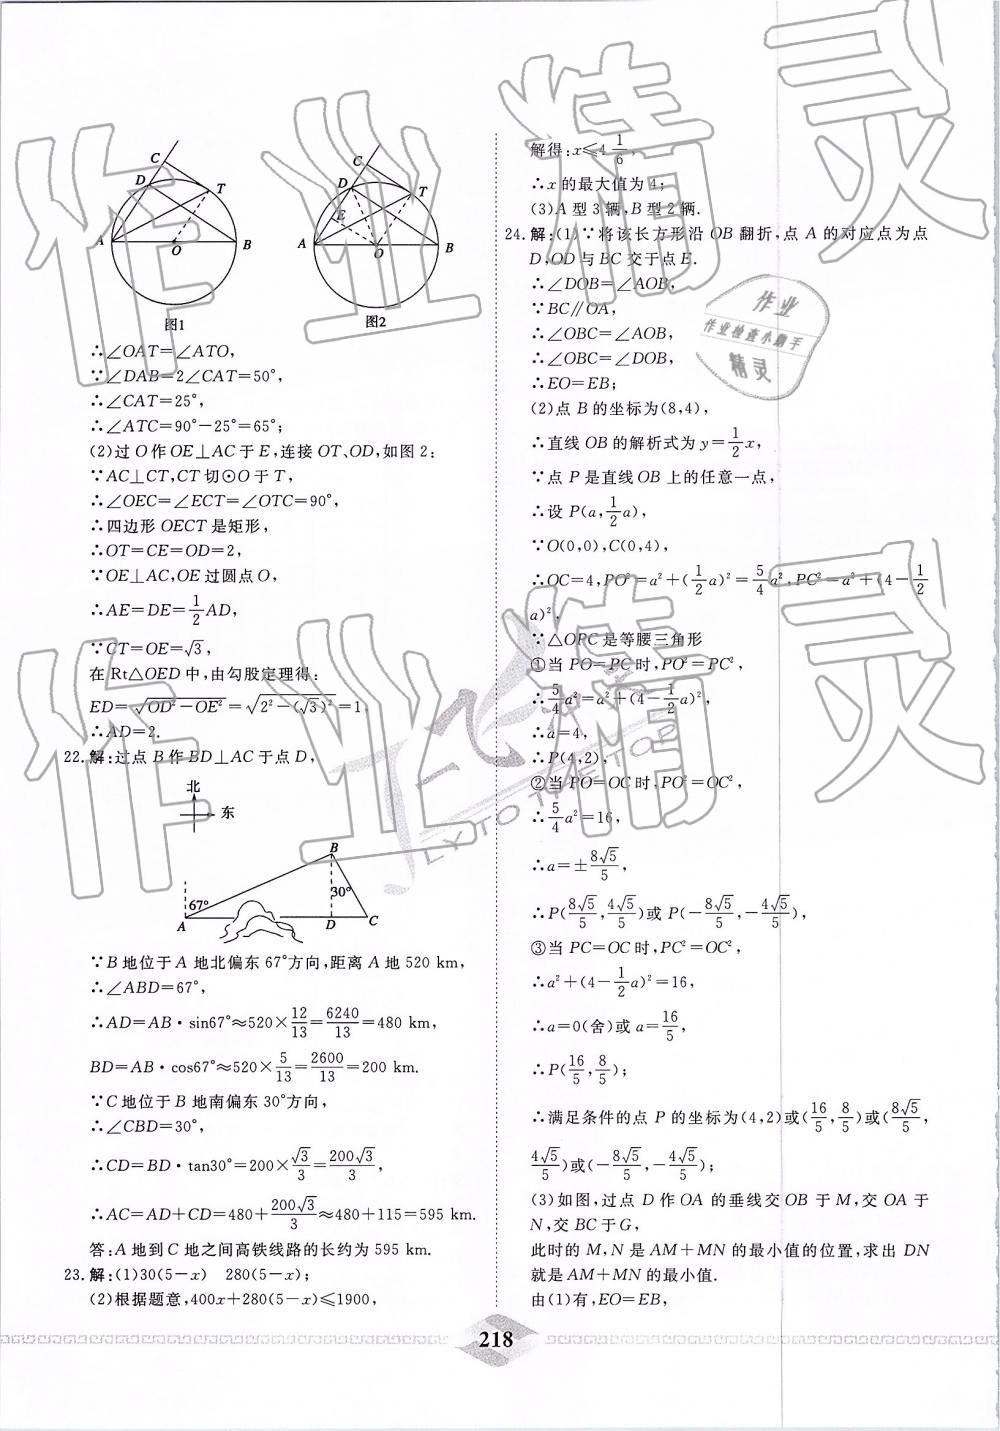 C
D
T
A
O
B
图1
C
D
T
E
A
O
B
图2
∴∠OAT=∠ATO,
∵∠DAB=2∠CAT=50°,
∴∠CAT=25°,
∴∠ATC=90°-25°=65°;
(2)过O作OE⊥AC于E,连接OT、OD,如图2:
∵AC⊥CT,CT切⊙O于T,
∴∠OEC=∠ECT=∠OTC=90°,
∴四边形OECT是矩形,
∴OT=CE=OD=2,
∵OE⊥AC,OE过圆点O,
∴AE=DE=1/2AD,
∵CT=OE=√3,
在Rt△OED中,由勾股定理得:
ED=√(OD²-OE²)=√(2²-(√3)²)=1,
∴AD=2.
22.解:过点B作BD⊥AC于点D,
北
东
B
67°
30°
A
D
C
∵B地位于A地北偏东67°方向,距离A地520 km,
∴∠ABD=67°,
∴AD=AB·sin67°≈520×12/13=6240/13=480 km,
BD=AB·cos67°≈520×5/13=2600/13=200 km.
∵C地位于B地南偏东30°方向,
∴∠CBD=30°,
∴CD=BD·tan30°=200×√3/3=200√3/3,
∴AC=AD+CD=480+200√3/3≈480+115=595 km.
答:A地到C地之间高铁线路的长约为595 km.
23.解:(1)30(5-x) 280(5-x);
(2)根据题意,400x+280(5-x)≤1900,
解得:x≤4 1/6,
∴x的最大值为4;
(3)A型3辆,B型2辆.
24.解:(1)∵将该长方形沿OB翻折,点A的对应点为点
D,OD与BC交于点E.
∴∠DOB=∠AOB,
∵BC∥OA,
∴∠OBC=∠AOB,
∴∠OBC=∠DOB,
∴EO=EB;
(2)点B的坐标为(8,4),
∴直线OB的解析式为y=1/2x,
∵点P是直线OB上的任意一点,
∴设P(a,1/2a),
∵O(0,0),C(0,4),
∴OC=4,PO²=a²+(1/2a)²=5/4a²,PC²=a²+(4-1/2
a)²,
∵△OPC是等腰三角形
①当PO=PC时,PO²=PC²,
∴5/4a²=a²+(4-1/2a)²,
∴a=4,
∴P(4,2),
②当PO=OC时,PO²=OC²,
∴5/4a²=16,
∴a=±8√5/5,
∴P(8√5/5,4√5/5)或P(-8√5/5,-4√5/5),
③当PC=OC时,PC²=OC²,
∴a²+(4-1/2a)²=16,
∴a=0(舍)或a=16/5,
∴P(16/5,8/5);
∴满足条件的点P的坐标为(4,2)或(16/5,8/5)或(8√5/5,
4√5/5)或(-8√5/5,-4√5/5);
(3)如图,过点D作OA的垂线交OB于M,交OA于
N,交BC于G,
此时的M,N是AM+MN的最小值的位置,求出DN
就是AM+MN的最小值.
由(1)有,EO=EB,
218
作业精灵
作业精灵
作业
作业检查小助手
精灵